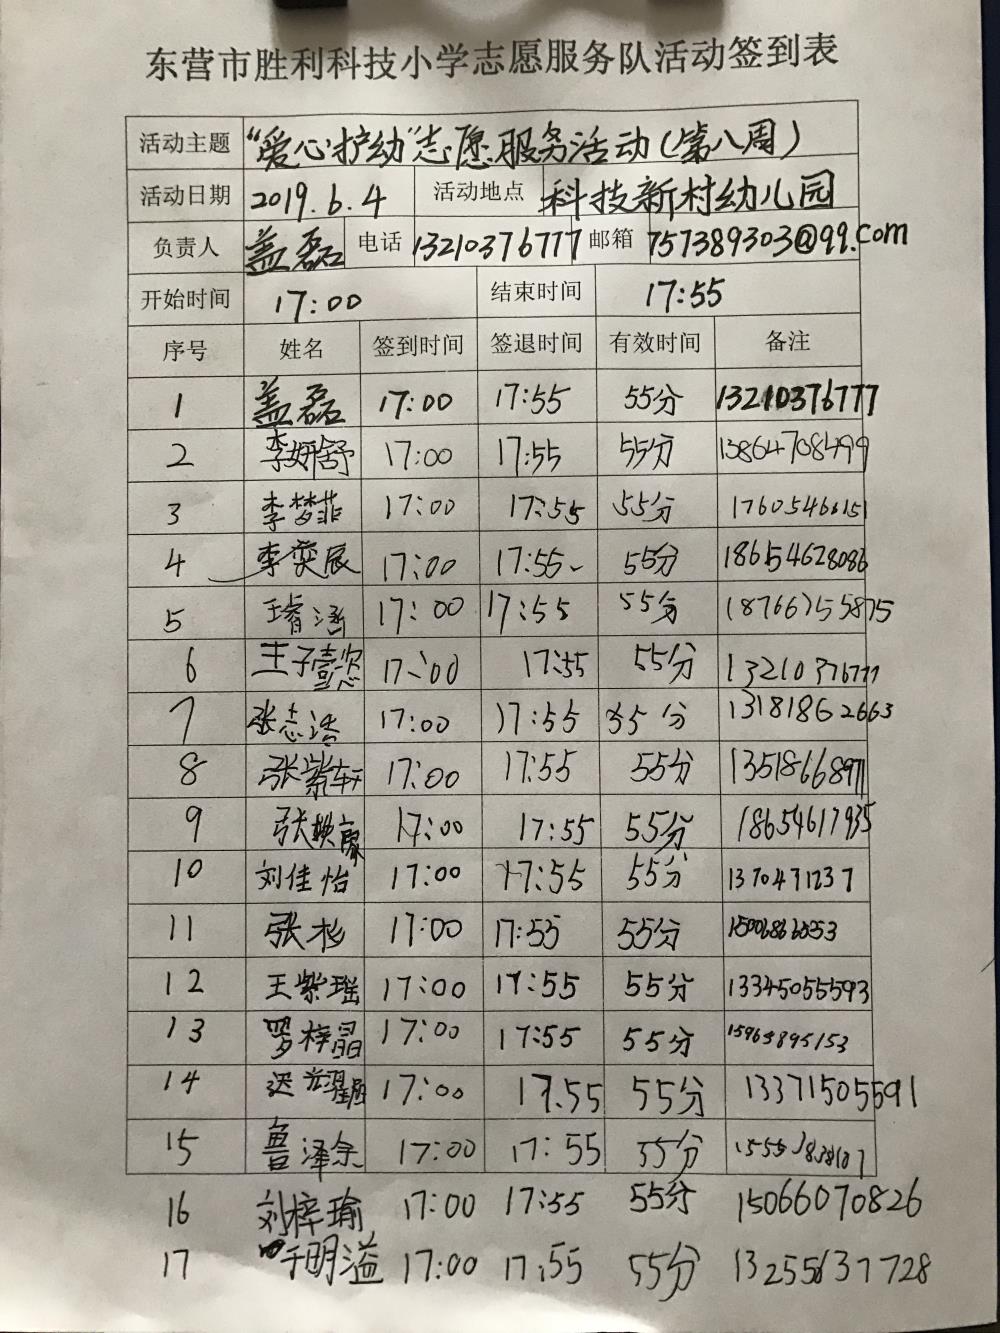 东营市胜利科技小学志愿服务队活动签到表
活动主题 “爱心护幼”志愿服务活动(第八周)
活动日期 2019.6.4 活动地点 科技新村幼儿园
负责人 盖磊 电话 13210376777 邮箱 757389303@qq.com
开始时间 17:00 结束时间 17:55
序号 姓名 签到时间 签退时间 有效时间 备注
1 盖磊 17:00 17:55 55分 13210376777
2 李妍舒 17:00 17:55 55分 13864708499
3 李梦菲 17:00 17:55 55分 17605466151
4 李奕辰 17:00 17:55 55分 18654628086
5 17:00 17:55 55分 18766755875
6 王子懿 17:00 17:55 55分 13210376777
7 张志浩 17:00 17:55 55分 13181862663
8 张紫轩 17:00 17:55 55分 13518668971
9 17:00 17:55 55分 18654617935
10 刘佳怡 17:00 17:55 55分 1370471237
11 张杉 17:00 17:55 55分
12 王紫瑶 17:00 17:55 55分 133450555593
13 罗梓晶 17:00 17:55 55分 15965895153
14 17:00 17.55 55分 13371505591
15 鲁泽余 17:00 17:55 55分
16 刘梓瑜 17:00 17:55 55分 15066070826
17 于明溢 17:00 17:55 55分 13255637728